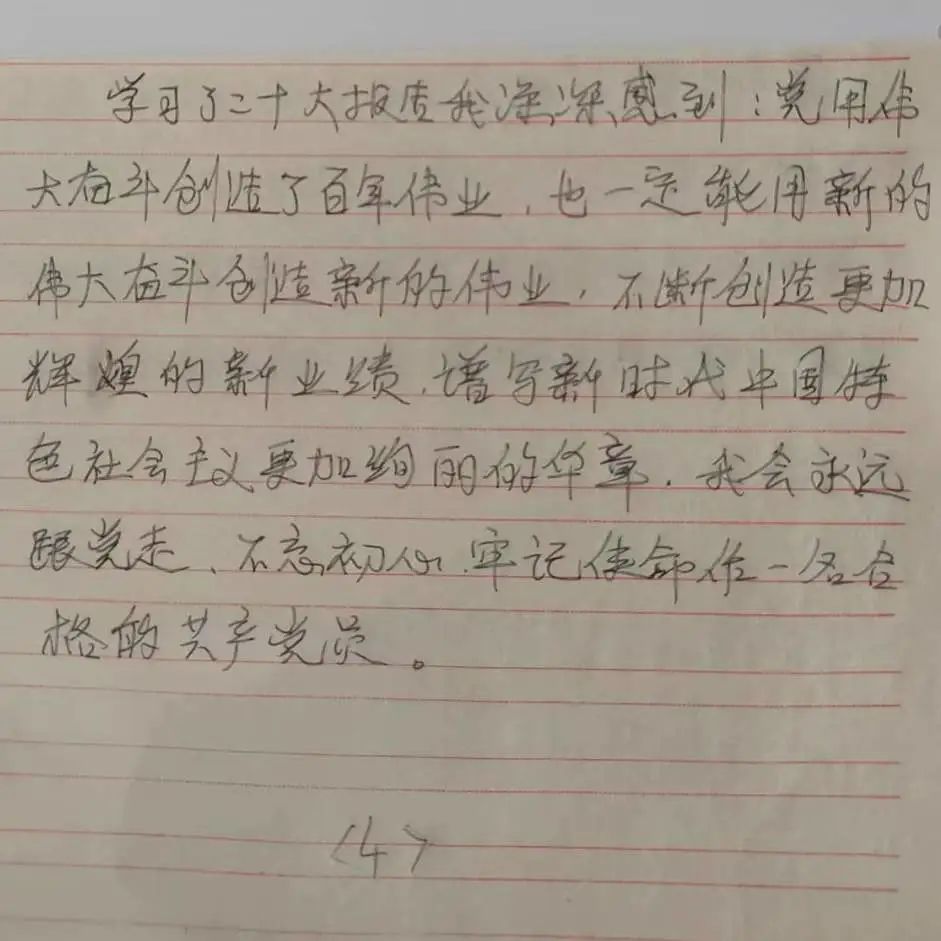 学习了二十大报告我深深感到：党用伟
大奋斗创造了百年伟业，也一定能用新的
伟大奋斗创造新的伟业，不断创造更加
辉煌的新业绩，谱写新时代中国特
色社会主义更加绚丽的华章，我会永远
跟党走、不忘初心、牢记使命作一名合
格的共产党员。
〈4〉